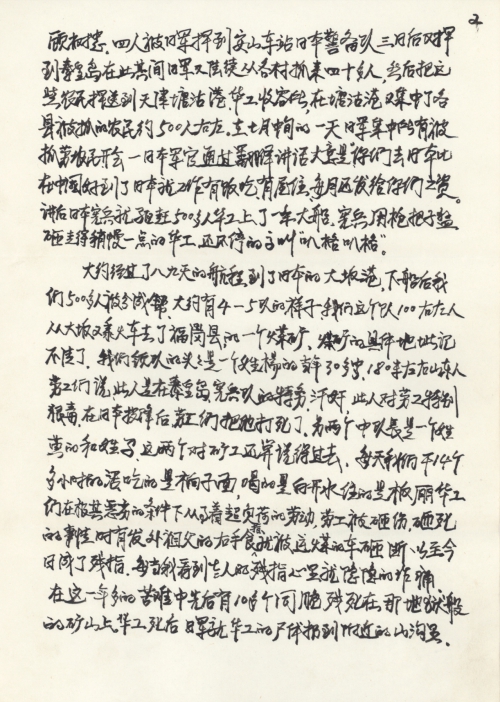 2
顾树忠、四人被日军押到安山车站日本警备队三日后又押
到秦皇岛在此其间日军又陆续从各村抓来四十多人,然后把这
些农民押送到天津塘沽港华工收容所,在塘沽港又集中了各
县被抓的农民约500人左右,在七月中旬的一天日军集中所有被
抓劳农民开会一日本军官通过翻译讲话大意是"你们去日本比
在中国好到了日本就工作有饭吃有屋住,每月还发给你们工资。
讲后日本宪兵就驱赶500多人华工上了一条大船,宪兵用枪把子猛
砸走得稍慢一点的华工,还不停的子叫"叭格叭格"。
大约经过了八九天的航程,到了日本的大坂港,下船后我
们500多人被分成帮,大约有4-5队的样子,我们这个队100左右人
从大坂又乘火车去了福岗县的一个煤矿,煤矿的具体地址记
不清了,我们领队的头头是一个姓杨的当年30多岁,180米左右山东人
劳工们说此人是在秦皇岛宪兵队的特务,汗奸,此人对劳工特别
狠毒,在日本投降后劳工们把他打死了,另两个中队长是一个姓
黄的和姓子,这两个对矿工还算说得过去,每天我们干14个
多小时的活吃的是橡子面,喝的是白开水住的是板,丽华工
们在极其恶劣的条件下从事着超负荷的劳动,劳工被砸伤,砸死
的事情时有发外祖父的右手食指就被运煤的车砸断以至今
日成了残指,每当我看到老人的残指心里就隐隐的作痛
在这一年多的苦难中先后有10多个同胞残死在那地狱般
的矿山上华工死后日军就华工的尸体扔到附近的山沟里。